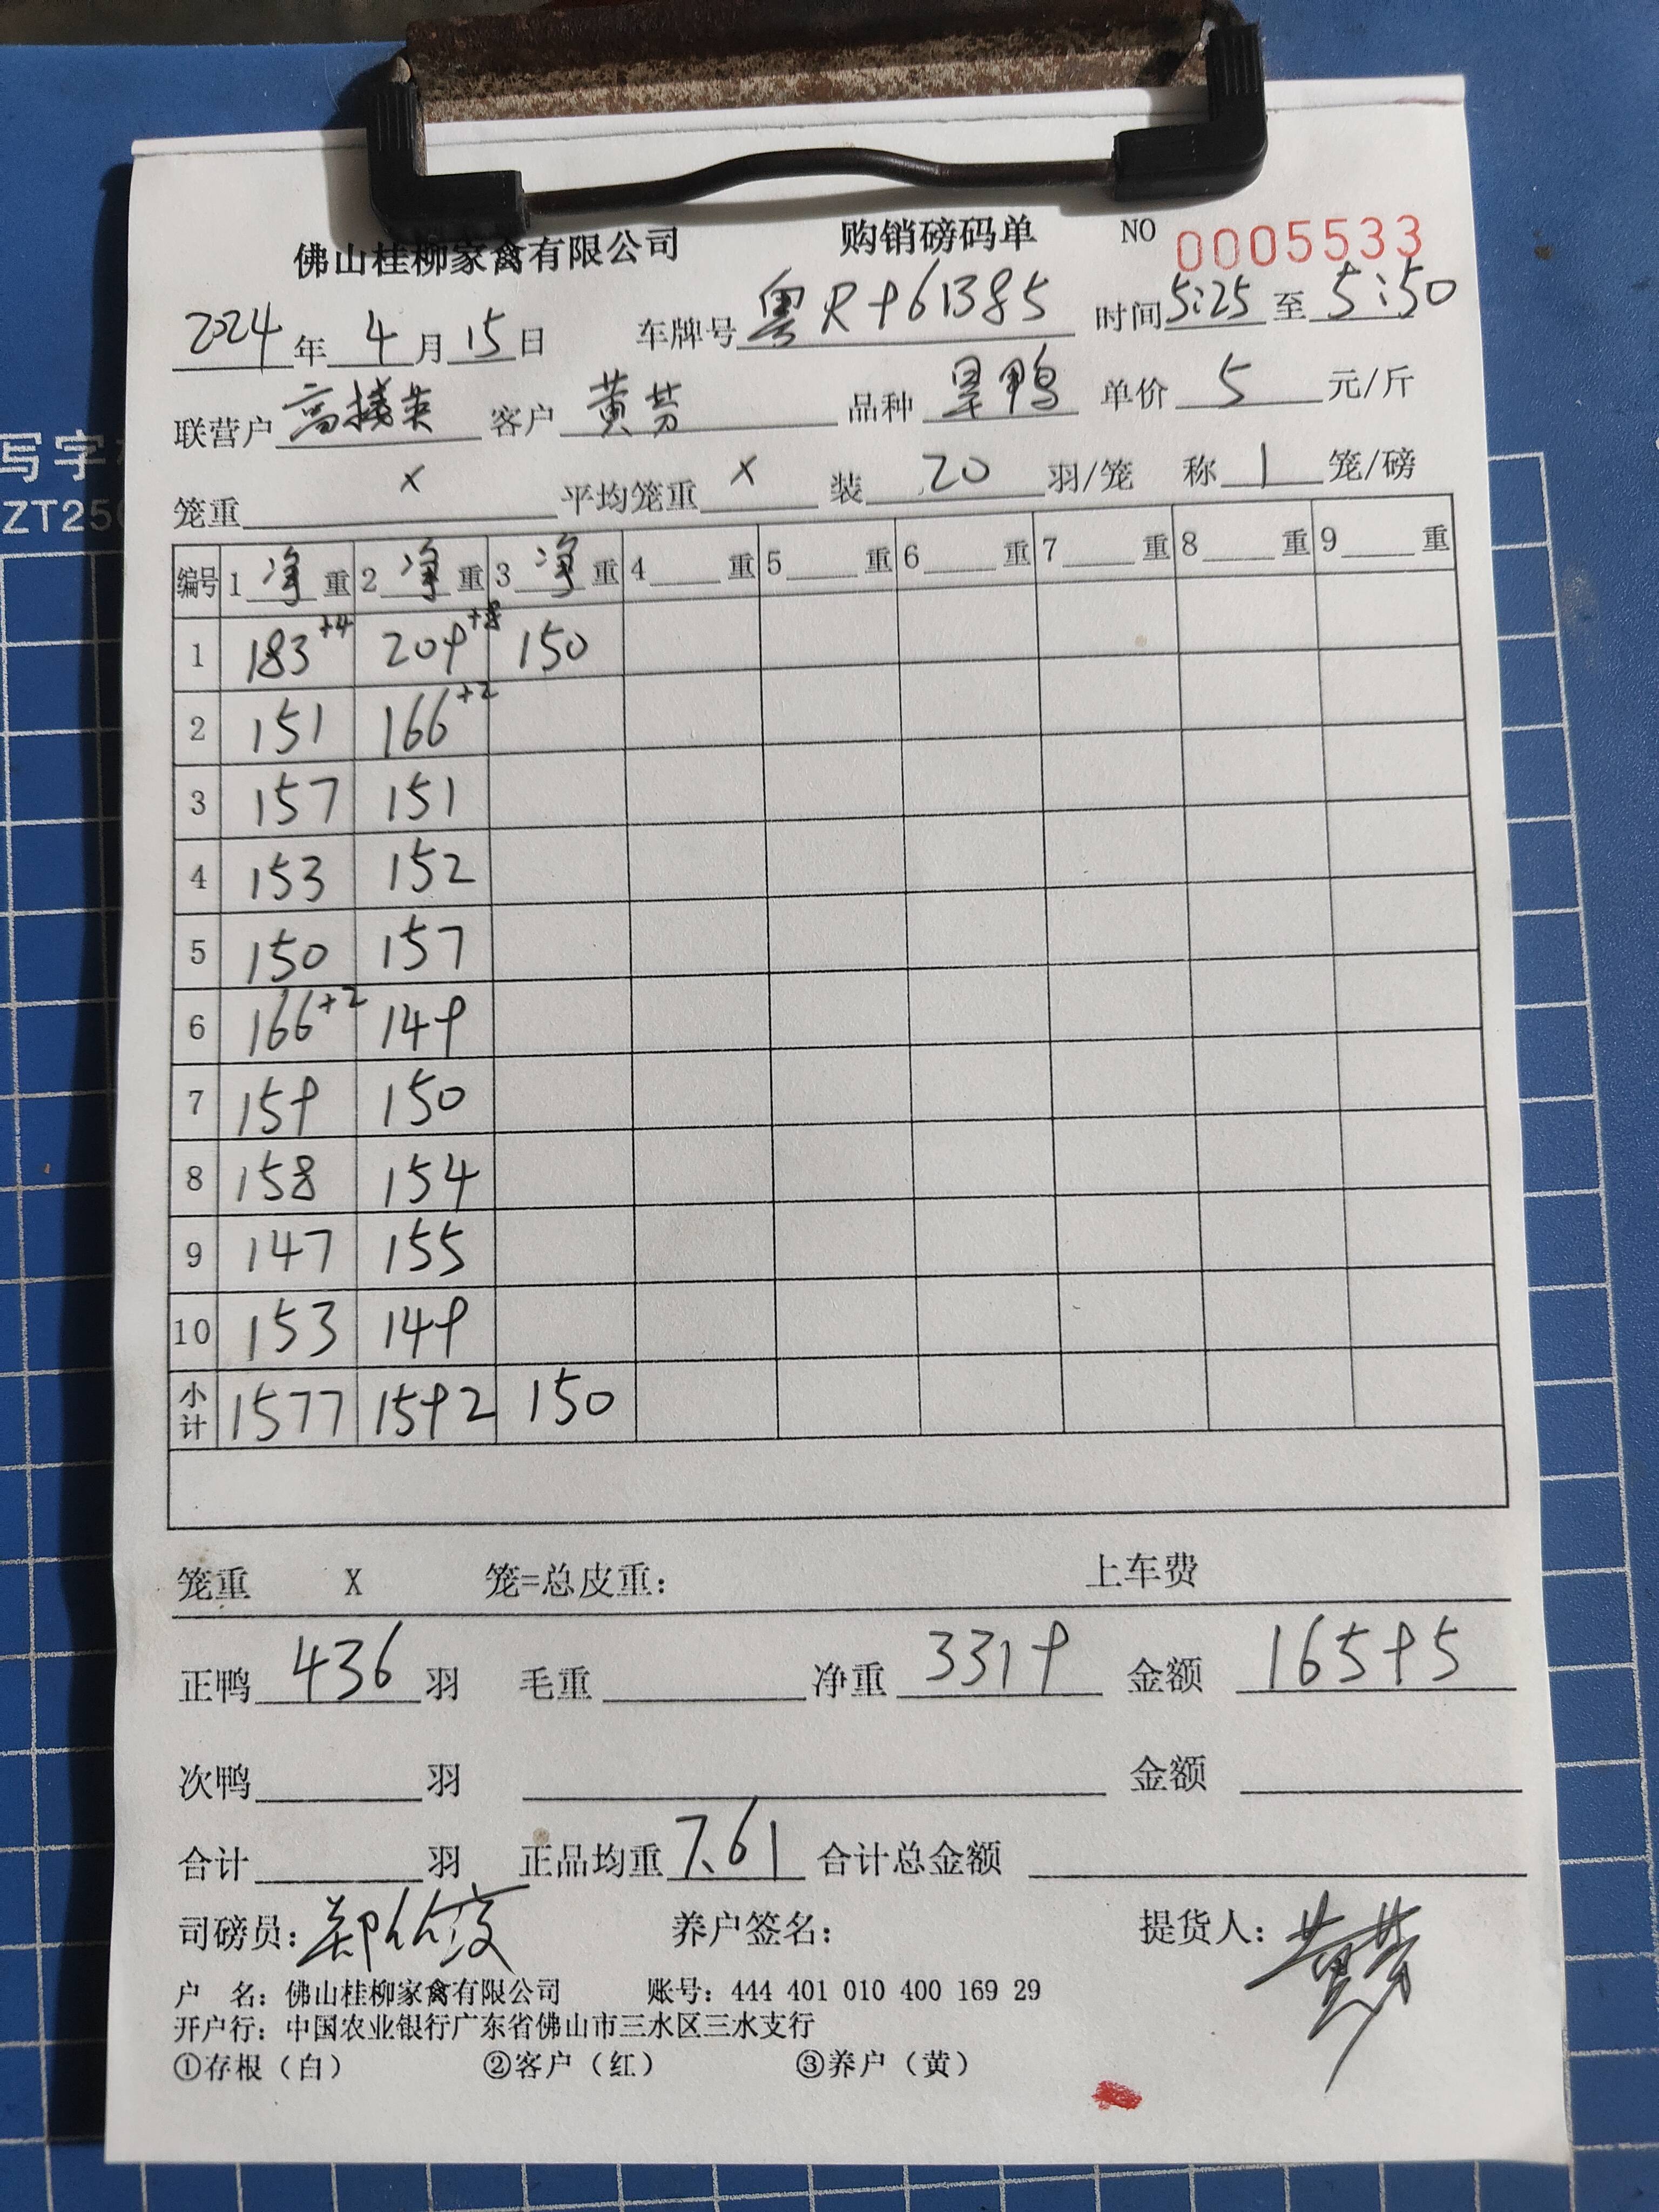 佛山桂柳家禽有限公司 购销磅码单 NO 0005533
2024年 4月 15日 车牌号 粤R961385 时间 5:25 至 5:50
联营户 客户 黄芬 品种 旱鸭 单价 5 元/斤
笼重 x 平均笼重 x 装 20 羽/笼 称 1 笼/磅
编号 1 净 重 2 净 重 3 净 重 4 重 5 重 6 重 7 重 8 重 9 重
1 183+4 209+8 150
2 151 166+2
3 157 151
4 153 152
5 150 157
6 166+2 149
7 159 150
8 158 154
9 147 155
10 153 149
小计 1577 1592 150
笼重 X 笼=总皮重: 上车费
正鸭 436 羽 毛重 净重 3319 金额 16595
次鸭 羽 金额
合计 羽 正品均重 7.61 合计总金额
司磅员: 养户签名: 提货人: 黄芬
户 名: 佛山桂柳家禽有限公司 账号: 444 401 010 400 169 29
开户行: 中国农业银行广东省佛山市三水区三水支行
①存根（白） ②客户（红） ③养户（黄）
写字
ZT25